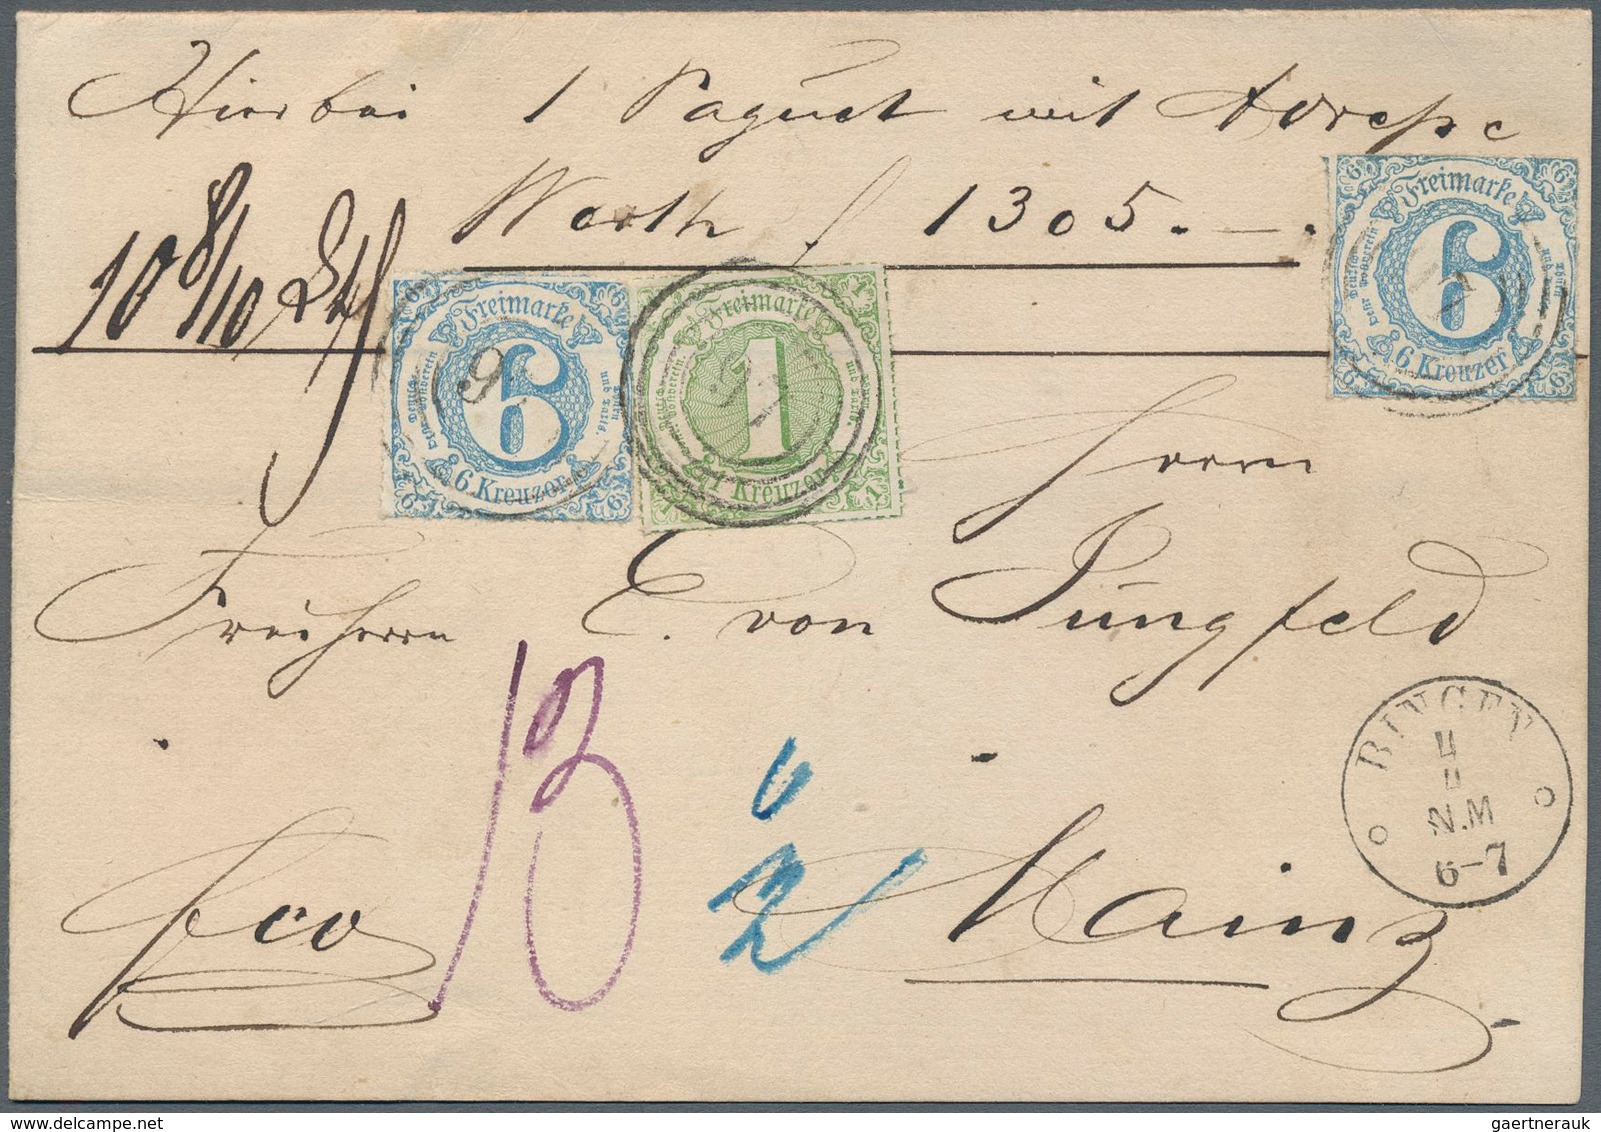 Hierbei 1 Paquet mit Adresse
Werth f 1305.—.
10 8/10 Lth
Freimarke
6
6 Kreuzer
Freimarke
1
1 Kreuzer
Freimarke
6
6 Kreuzer
Herrn
Freiherrn E. von Jungfeld
13
6
2
BINGEN
4
N.M
6-7
fco
Mainz
gaertnerauk